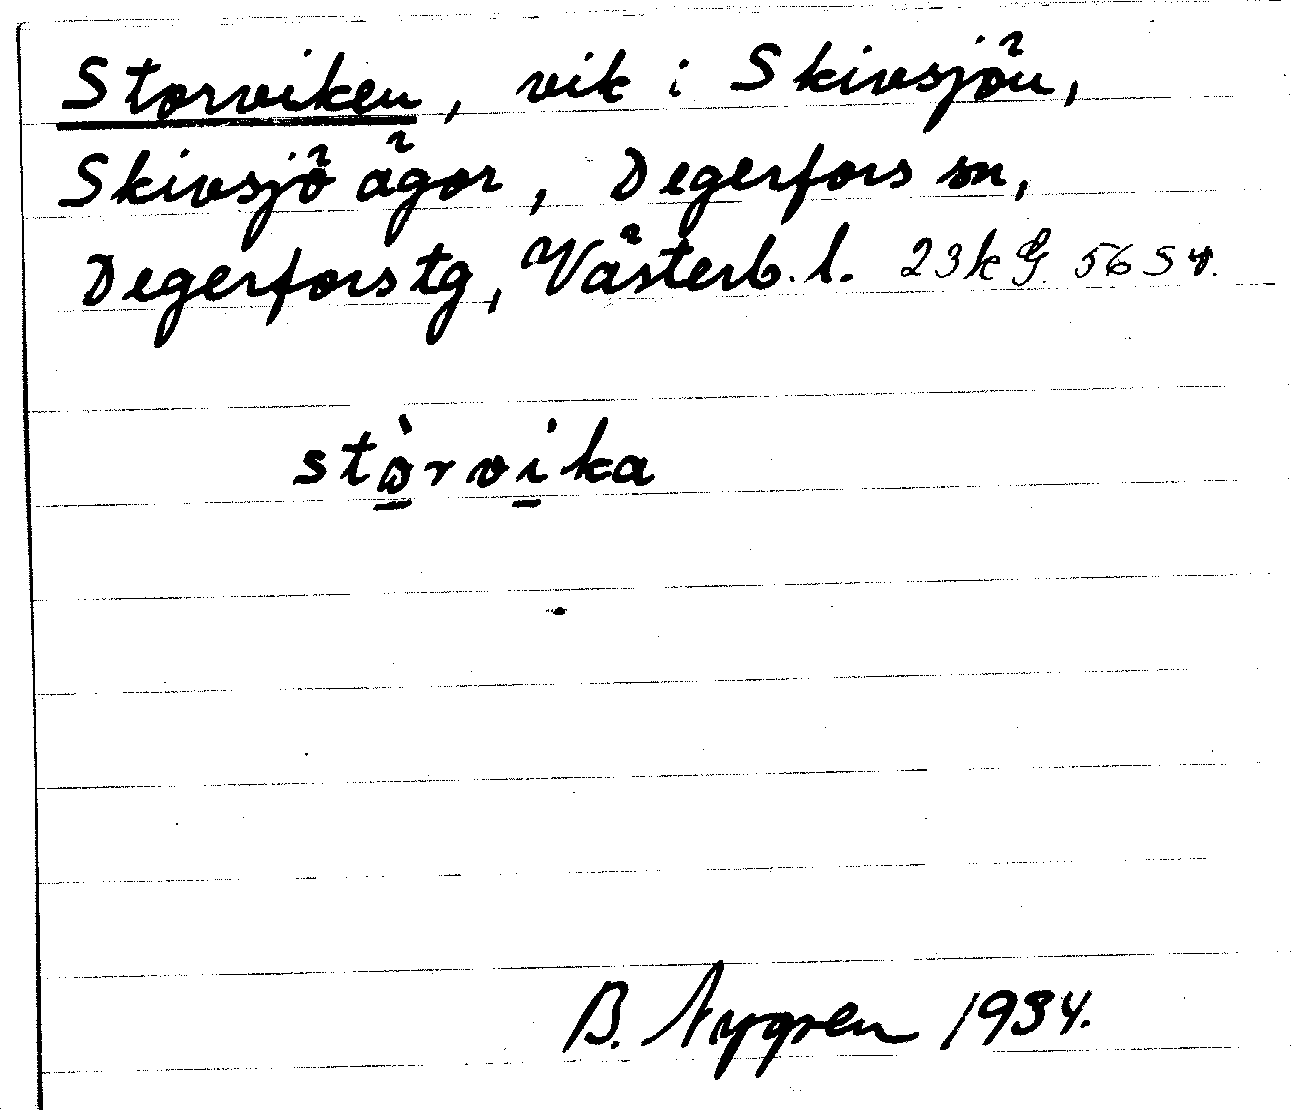 Storviken, vik i Skivsjön,
Skivsjö ägor, Degerfors sn,
Degerfors tg, Västerb. l. 23k G 56 SV.
stòrvika
B. Nygren 1934.